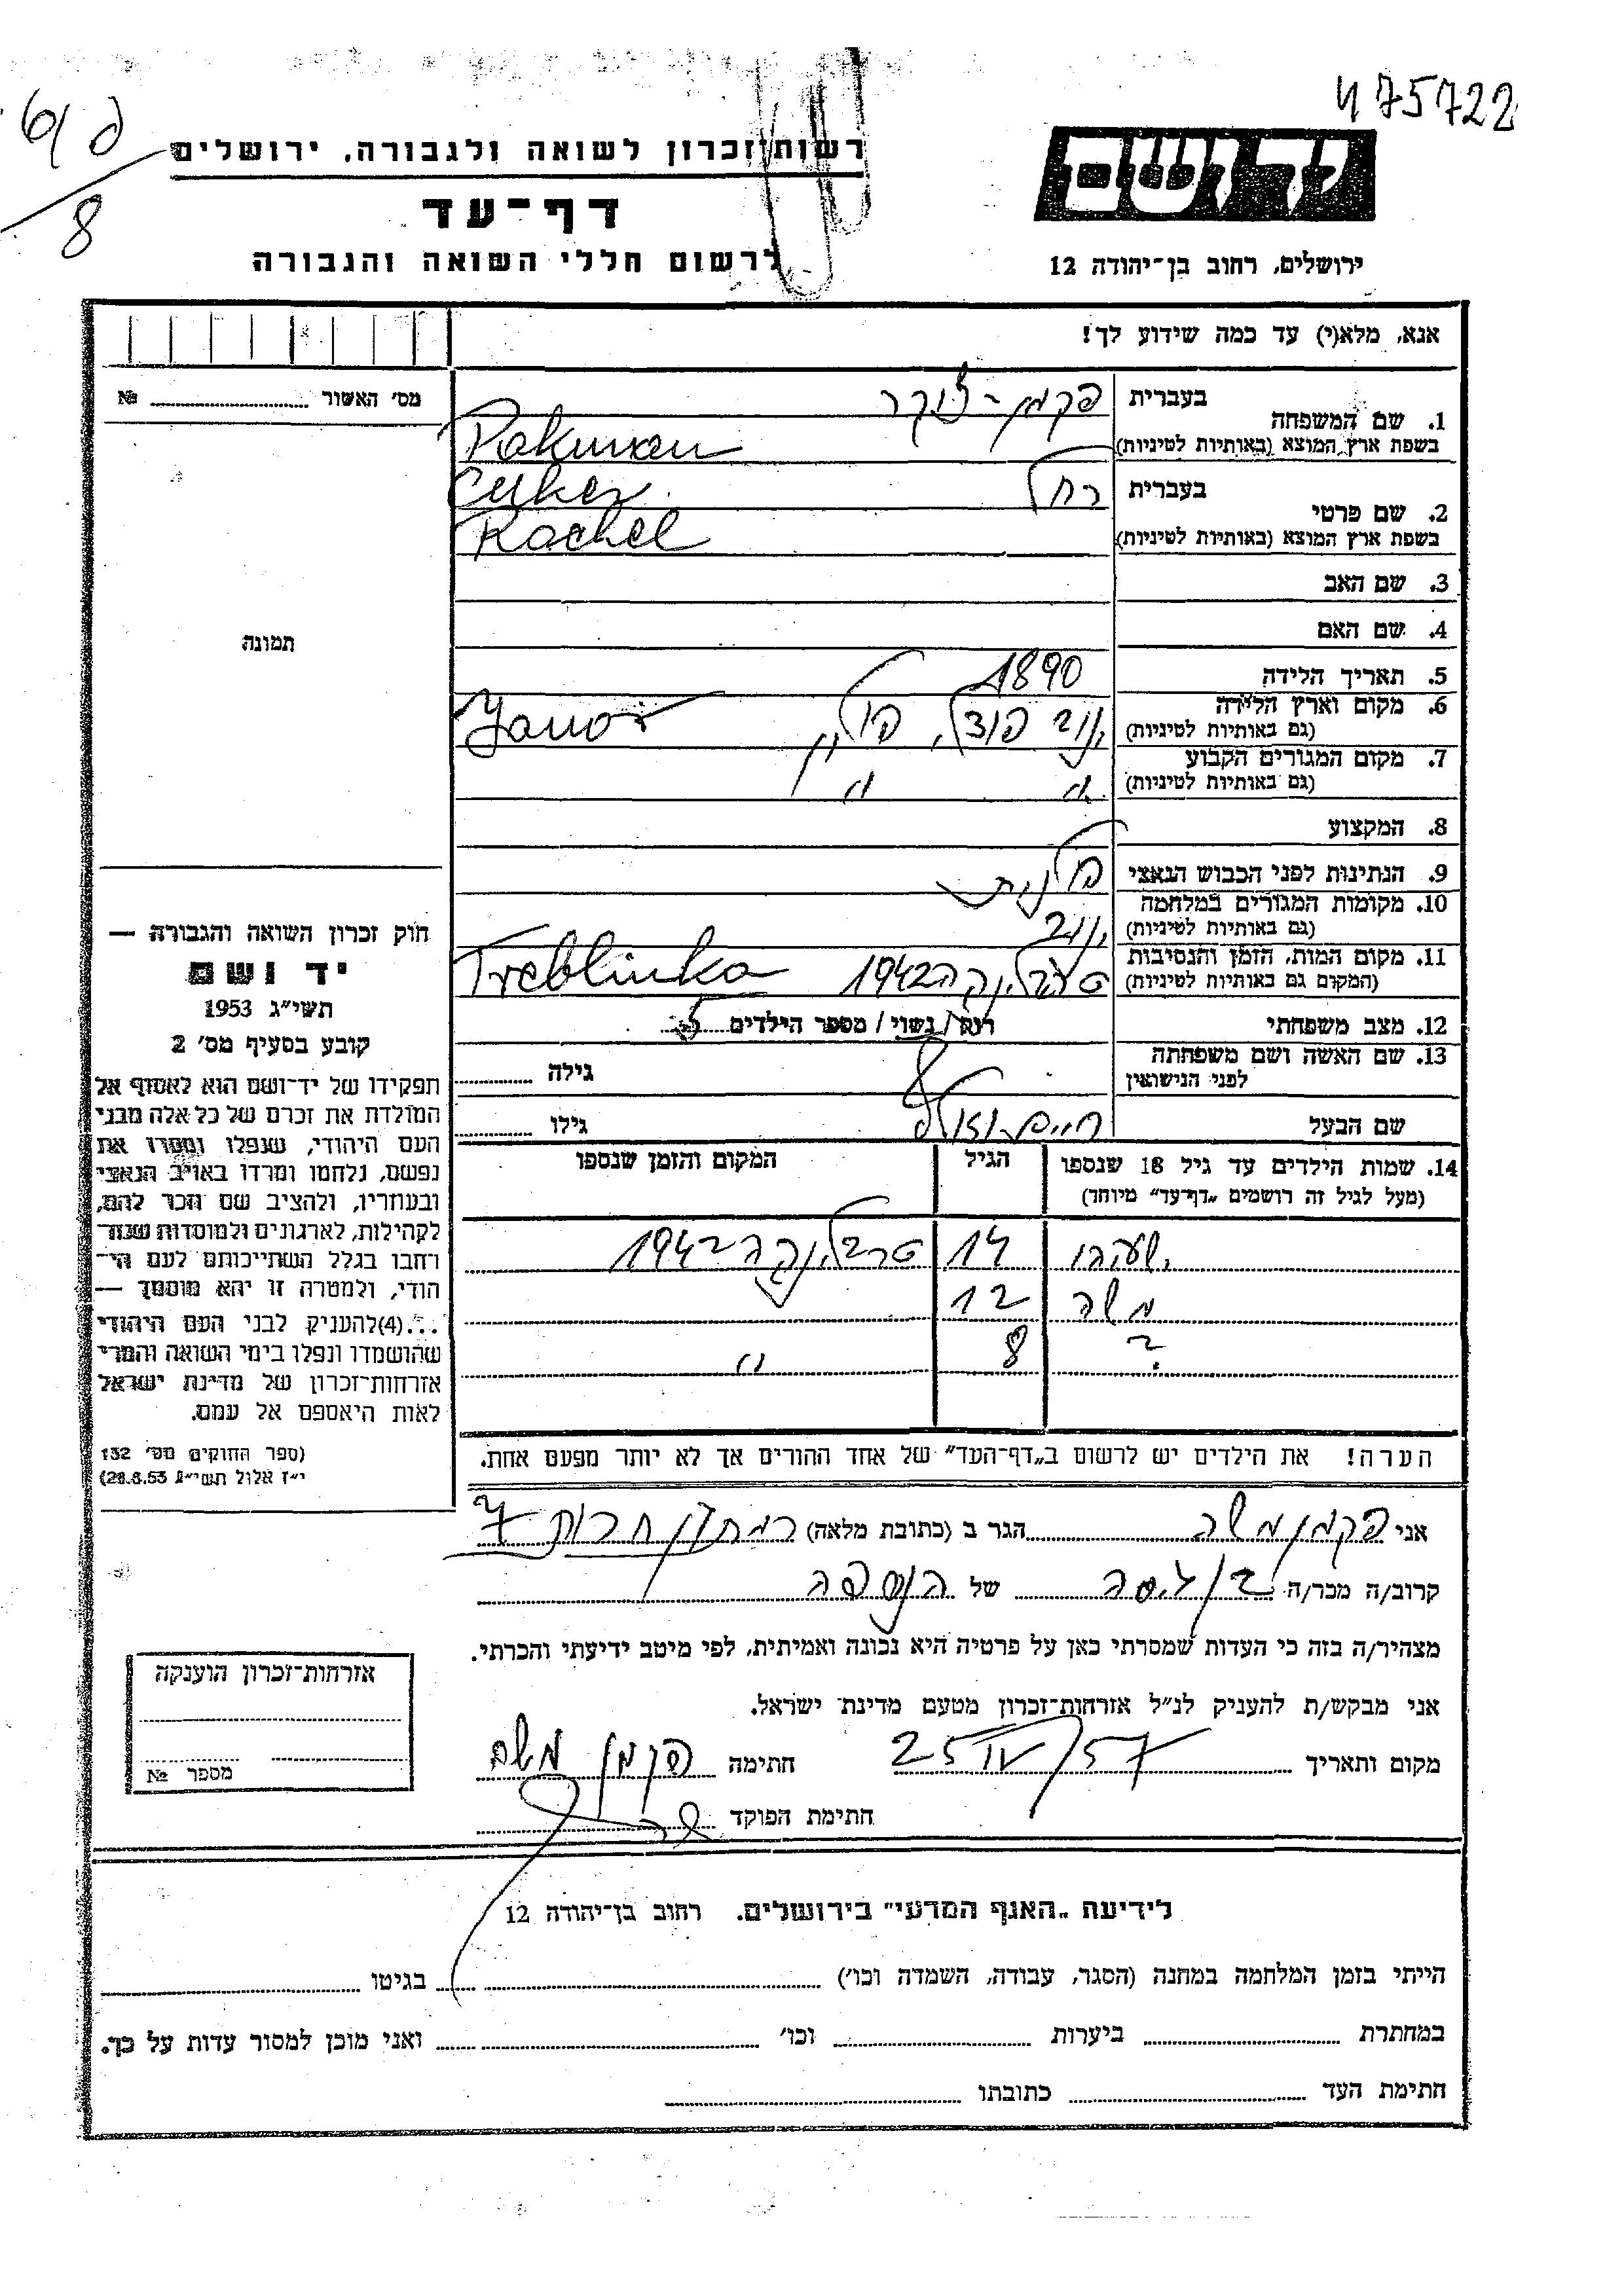 475722
רשות־זכרון לשואה ולגבורה, ירושלים
דף־עד
לרשום חללי השואה והגבורה
8
יד ושם
ירושלים, רחוב בן־יהודה 12
אנא, מלא(י) עד כמה שידוע לך!
מס׳ האשור № 
1. שם המשפחה
בעברית פקמן-צוקר
בשפת ארץ המוצא (באותיות לטיניות) Pakman
Cuker
2. שם פרטי
בעברית רחל
בשפת ארץ המוצא (באותיות לטיניות) Rachel
3. שם האב
4. שם האם
5. תאריך הלידה 1890
6. מקום וארץ הלידה
(גם באותיות לטיניות) ינוב פודל, פולין Janov
7. מקום המגורים הקבוע
(גם באותיות לטיניות) " "
8. המקצוע
9. הנתינות לפני הכבוש הנאצי פולנית
10. מקומות המגורים במלחמה
(גם באותיות לטיניות) ינוב
11. מקום המות, הזמן והנסיבות
(המקום גם באותיות לטיניות) טרבלינקה 1942 Treblinka
12. מצב משפחתי רוק/נשוי/מספר הילדים 5
13. שם האשה ושם משפחתה
לפני הנישואין גילה
שם הבעל גילו
14. שמות הילדים עד גיל 18 שנספו הגיל המקום והזמן שנספו
(מעל לגיל זה רושמים „דף־עד" מיוחד)
ישעיהו 14 טרבלינקה 1942
משה 12
? 8 "
הערה! את הילדים יש לרשום ב„דף־העד" של אחד ההורים אך לא יותר מפעם אחת.
תמונה
חוק זכרון השואה והגבורה —
יד ושם
תשי״ג 1953
קובע בסעיף מס׳ 2
תפקידו של יד־ושם הוא לאסוף אל
המולדת את זכרם של כל אלה מבני
העם היהודי, שנפלו ומסרו את
נפשם, נלחמו ומרדו באויב הנאצי
ובעוזריו, ולהציב שם וזכר להם,
לקהילות, לארגונים ולמוסדות שנח־
רחבו בגלל השתייכותם לעם הי־
הודי, ולמטרה זו יהא מוסמך —
...(4)להעניק לבני העם היהודי
שהושמדו ונפלו בימי השואה והמרי
אזרחות־זכרון של מדינת ישראל
לאות היאספם אל עמם.
(ספר החוקים מס׳ 132
י״ז אלול תשי״ג 28.8.53)
אני פקמן משה הגר ב (כתובת מלאה) רמתגן חרות 7
קרוב/ה מכר/ה בן גיסה של הנספה
מצהיר/ה בזה כי העדות שמסרתי כאן על פרטיה היא נכונה ואמיתית, לפי מיטב ידיעתי והכרתי.
אני מבקש/ת להעניק לנ״ל אזרחות־זכרון מטעם מדינת ישראל.
מקום ותאריך 25 IV/57 חתימה פקמן משה
חתימת הפוקד
אזרחות־זכרון הוענקה
מספר №
לידיעת „האגף המדעי" בירושלים. רחוב בן־יהודה 12
הייתי בזמן המלחמה במחנה (הסגר, עבודה, השמדה וכו׳) בגיטו
במחתרת ביערות וכו׳ ואני מוכן למסור עדות על כך.
חתימת העד כתובתו